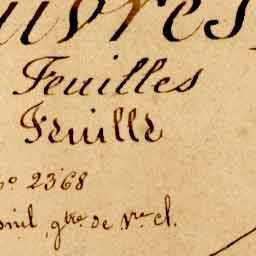 uvres,
Feuilles
Feuille
º 2368
gtre de Vve cl.